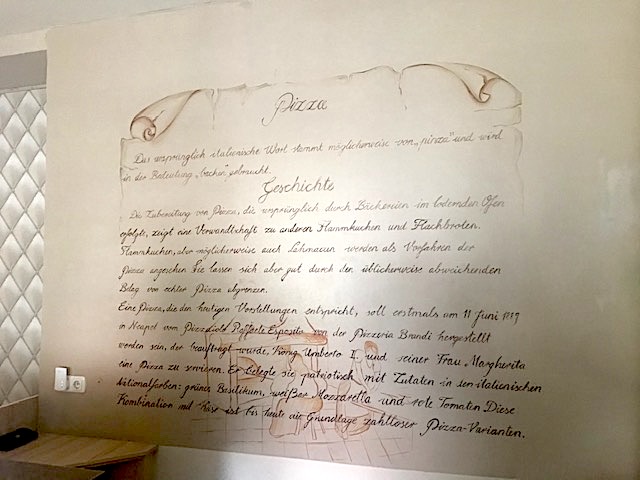 Pizza
Das ursprünglich italienische Wort stammt möglicherweise von „pinza" und wird
in der Bedeutung „backen" gebraucht.
Geschichte
Die Zubereitung von Pizza, die ursprünglich durch Bäckereien im lodernden Ofen
erfolgte, zeigt eine Verwandtschaft zu anderen Flammkuchen und Flachbroten.
Flammkuchen, aber möglicherweise auch Lahmacun werden als Vorfahren der
Pizza angesehen Sie lassen sich aber gut durch den üblicherweise abweichenden
Belag von echter Pizza abgrenzen.
Eine Pizza, die den heutigen Vorstellungen entspricht, soll erstmals am 11 Juni 1889
in Neapel vom Pizzaiolo Raffaele Esposito von der Pizzeria Brandi hergestellt
worden sein, der beauftragt wurde, König Umberto I. und seiner Frau Margherita
eine Pizza zu servieren. Er belegte sie patriotisch mit Zutaten in den italienischen
Nationalfarben: grünes Basilikum, weißer Mozzarella und rote Tomaten Diese
Kombination mit Käse ist bis heute die Grundlage zahlloser Pizza-Varianten.